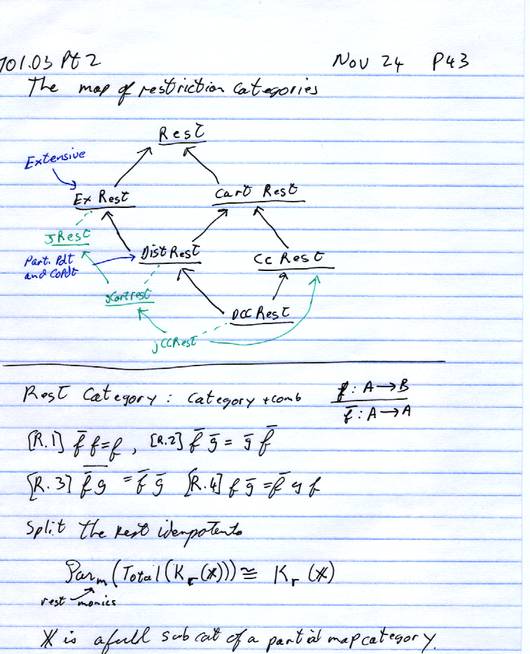 701.03 Pt 2 Nov 24 P43
The map of restriction categories
Rest
Extensive
Ex Rest Cart Rest
JRest
Part. Pdt and CoPdt
Dist Rest
Cc Rest
jCartrest
DCC Rest
jCCRest
Rest Category: Category + comb f: A → B
f̄: A → A
[R.1] f̄ f = f , [R.2] f̄ ḡ = ḡ f̄
[R.3] \overline{f̄ g} = f̄ ḡ [R.4] f ḡ = \overline{f g} f
Split the rest idempotents
Par_m (Total (K_r(X))) ≅ K_r (X)
rest monics
X is a full subcat of a partial map category.